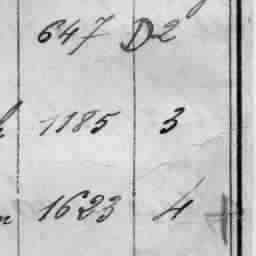 647 D2
1185 3
1623 4